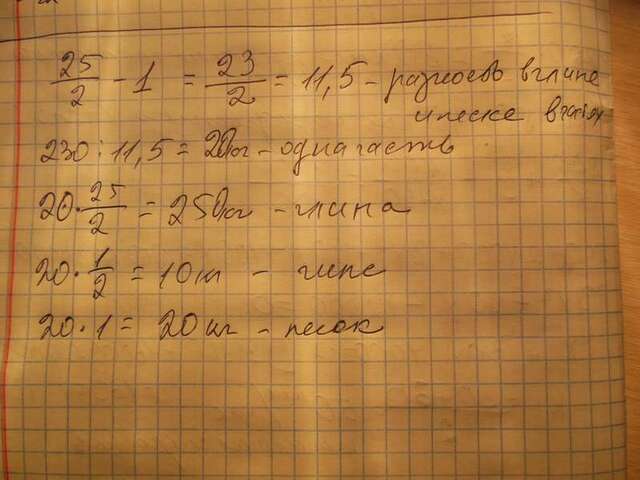 25/2 - 1 = 23/2 = 11,5 - разность в глине
и песке в частях
230 : 11,5 = 20 кг - одна часть
20 · 25/2 = 250 кг - глина
20 · 1/2 = 10 кг - гипс
20 · 1 = 20 кг - песок